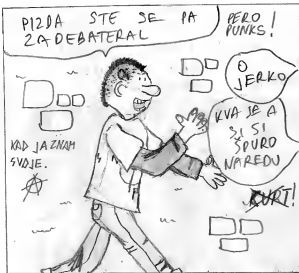 PIZDA STE SE PA
ZADEBATERAL
PERO
PUNKS!
O
JERKO
KVA JE A
SI SI
ŠPURO
NAREDU
KAD JA ZNAM
SVOJE.
KURT!